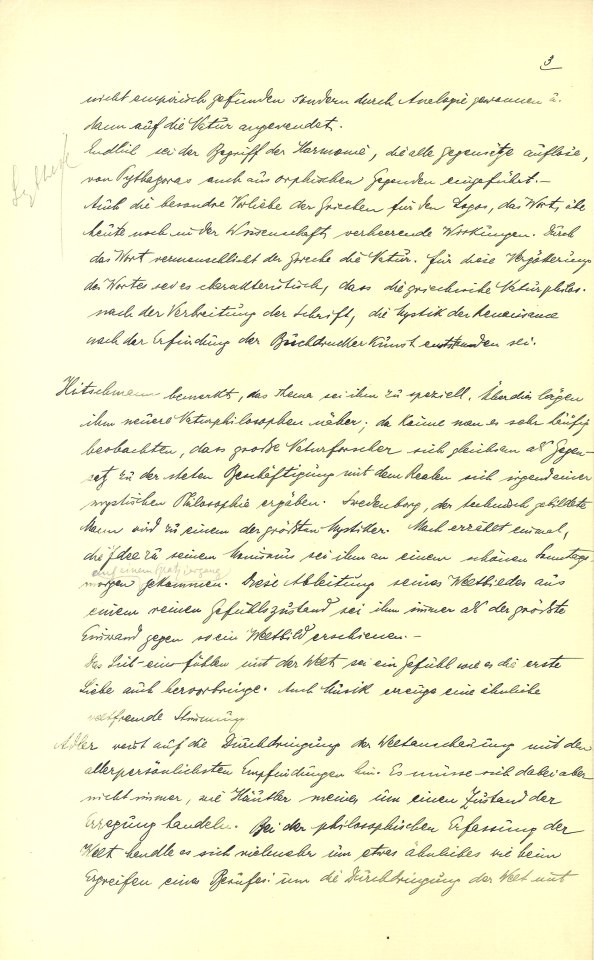 3
nicht empirisch gefunden sondern durch Analogie gewonnen u.
dann auf die Natur angewendet.
Endlich sei der Begriff der Harmonie, die alle Gegensätze auflöse,
von Pythagoras auch aus orphischen Gegenden eingeführt.-
Auch die besondre Vorliebe der Griechen für den Logos, das Wort, übe
heute noch in der Wissenschaft verheerende Wirkungen. Durch
das Wort vermenschlicht der Grieche die Natur. Für diese Vergötterung
des Wortes sei es charakteristisch, dass die griechische Naturphilos.
nach der Verbreitung der Schrift, die Mystik der Renaissance
nach der Erfindung der Buchdrucker Kunst entstanden sei.
Hitschmann bemerkt, das Thema sei ihm zu speziell. Überdies lägen
ihm neuere Naturphilosophen näher; da könne man es sehr häufig
beobachten, dass große Naturforscher sich gleichsam als Gegen-
satz zu der steten Beschäftigung mit dem Realen sich irgend einer
mystischen Philosophie ergäben. Swedenborg, der technisch gebildete
Mann wird zu einem der größten Mystiker. Mach erzählt einmal,
die Idee zu seinem Monismus sei ihm an einem schönen Sonntags-
auf einem Spatziergang
morgen gekommen. Diese Ableitung seines Weltbildes aus
einem reinen Gefühlszustand sei ihm immer als der größte
Einwand gegen so ein Weltbild erschienen.-
Das Sich-ein-fühlen mit der Welt sei ein Gefühl wie es die erste
Liebe auch hervorbringe. Auch Musik erzeuge eine ähnliche
weltfremde Stimmung
Adler weist auf die Durchdringung der Weltanschauung mit den
allerpersönlichsten Empfindungen hin. Es müsse sich dabei aber
nicht immer, wie Häutler meine, um einen Zustand der
Erregung handeln. Bei der philosophischen Erfassung der
Welt handle es sich vielmehr um etwas ähnliches wie beim
Ergreifen eines Berufes: um die Durchdringung der Welt mit